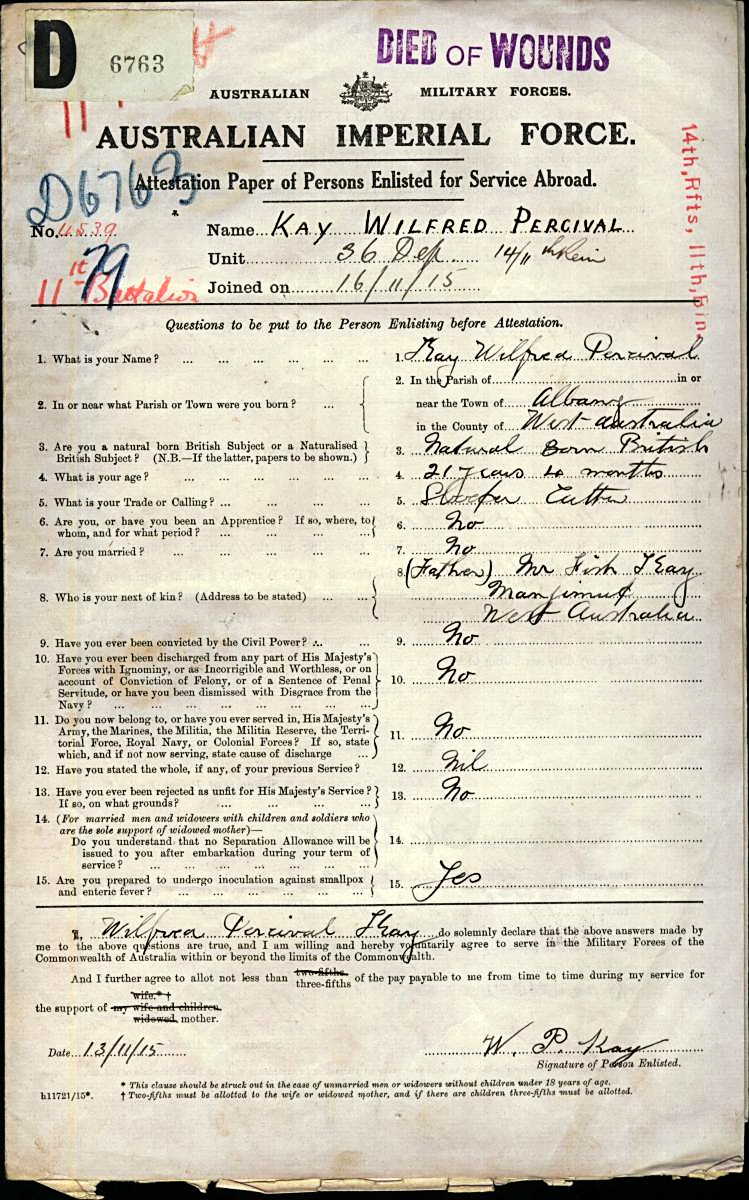 D 6763
DIED OF WOUNDS
AUSTRALIAN MILITARY FORCES.
AUSTRALIAN IMPERIAL FORCE.
D6763
Attestation Paper of Persons Enlisted for Service Abroad.
14th, Rfts, 11th, Bn
No. 4539 Name KAY WILFRED PERCIVAL
79
Unit 36 Dep 14/11 th Rein
11th Battalion
Joined on 16/11/15
Questions to be put to the Person Enlisting before Attestation.
1. What is your Name? ... 1. Kay Wilfred Percival
2. In or near what Parish or Town were you born? ... 2. In the Parish of in or
near the Town of Albany
in the County of West Australia
3. Are you a natural born British Subject or a Naturalised
British Subject? (N.B.—If the latter, papers to be shown.) 3. Natural Born British
4. What is your age? ... 4. 21 years 4 months
5. What is your Trade or Calling? ... 5. Sleeper Cutter
6. Are you, or have you been an Apprentice? If so, where, to
whom, and for what period? ... 6. No
7. Are you married? ... 7. No
8. Who is your next of kin? (Address to be stated) ... 8. (Father) Mr Kay
Manjimup
West Australia
9. Have you ever been convicted by the Civil Power? ... 9. No
10. Have you ever been discharged from any part of His Majesty's
Forces with Ignominy, or as Incorrigible and Worthless, or on
account of Conviction of Felony, or of a Sentence of Penal
Servitude, or have you been dismissed with Disgrace from the
Navy? ... 10. No
11. Do you now belong to, or have you ever served in, His Majesty's
Army, the Marines, the Militia, the Militia Reserve, the Terri-
torial Force, Royal Navy, or Colonial Forces? If so, state
which, and if not now serving, state cause of discharge ... 11. No
12. Have you stated the whole, if any, of your previous Service? 12. Nil
13. Have you ever been rejected as unfit for His Majesty's Service?
If so, on what grounds? ... 13. No
14. (For married men and widowers with children and soldiers who
are the sole support of widowed mother)—
Do you understand that no Separation Allowance will be
issued to you after embarkation during your term of
service? ... 14.
15. Are you prepared to undergo inoculation against smallpox
and enteric fever? ... 15. Yes
I, Wilfred Percival Kay do solemnly declare that the above answers made by
me to the above questions are true, and I am willing and hereby voluntarily agree to serve in the Military Forces of the
Commonwealth of Australia within or beyond the limits of the Commonwealth.
And I further agree to allot not less than two-fifths three-fifths of the pay payable to me from time to time during my service for
wife.* †
the support of my wife and children.
widowed mother.
Date 13/11/15
W. P. Kay
Signature of Person Enlisted.
* This clause should be struck out in the case of unmarried men or widowers without children under 18 years of age.
h11721/15*. † Two-fifths must be allotted to the wife or widowed mother, and if there are children three-fifths must be allotted.